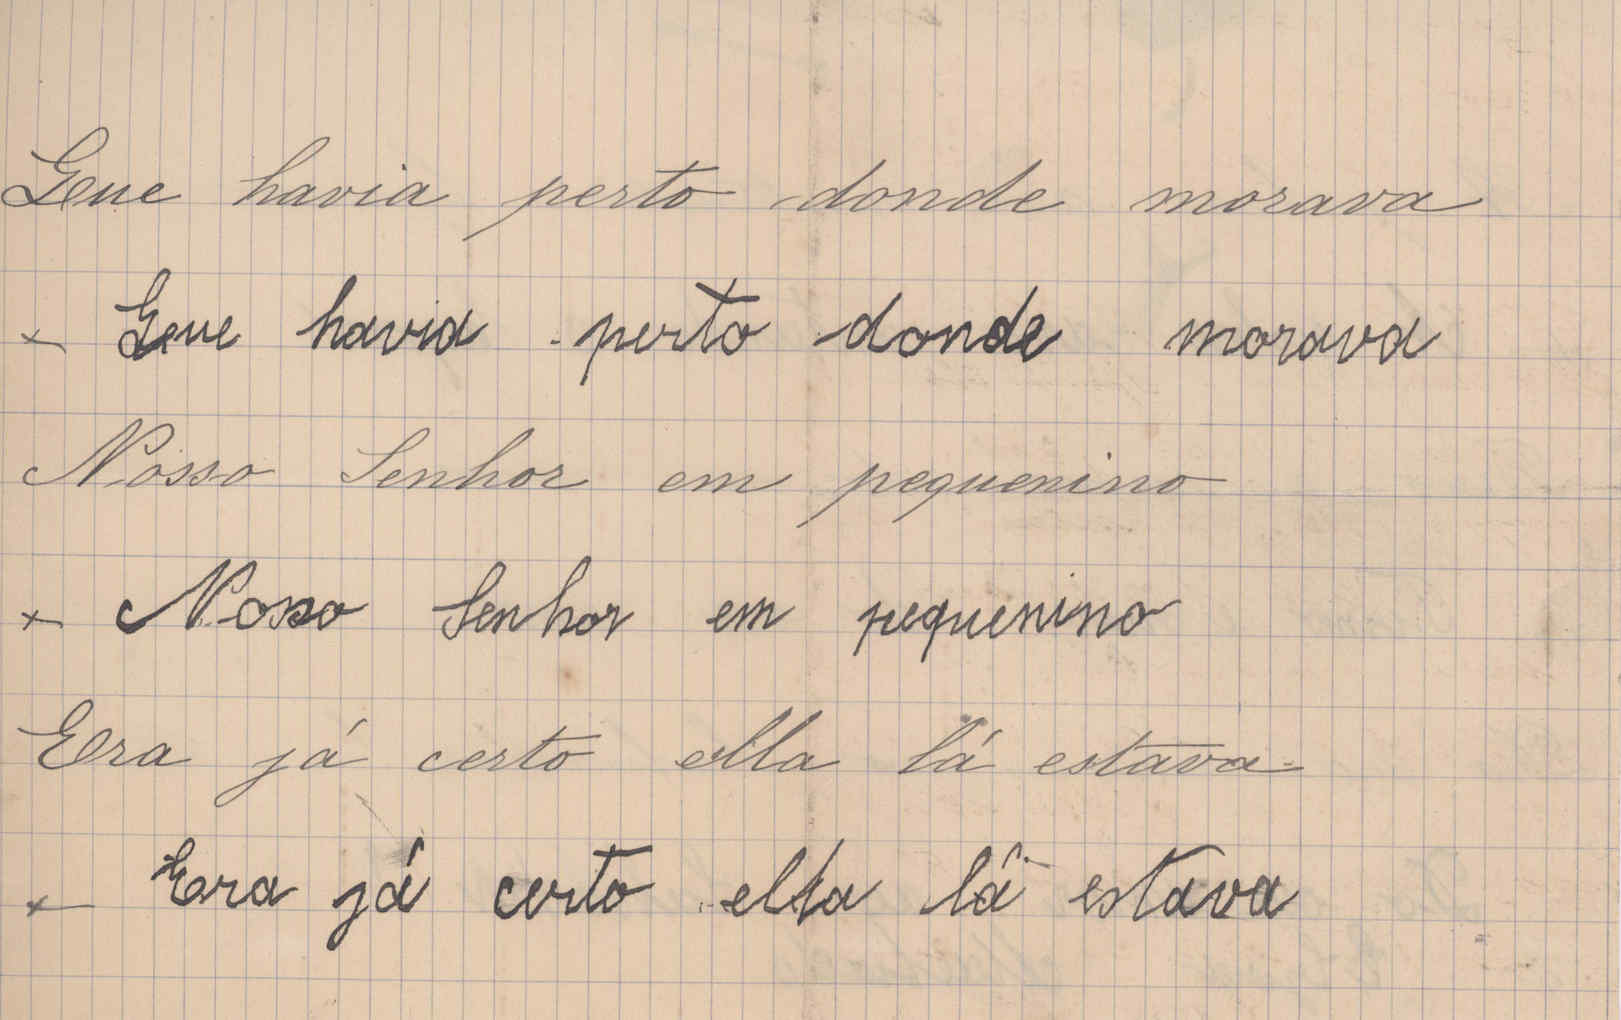 Que havia perto donde morava
x Que havia perto donde morava
Nosso Senhor em pequenino
x Nosso Senhor em pequenino
Era já certo ella lá estava
x Era já certo ella lá estava